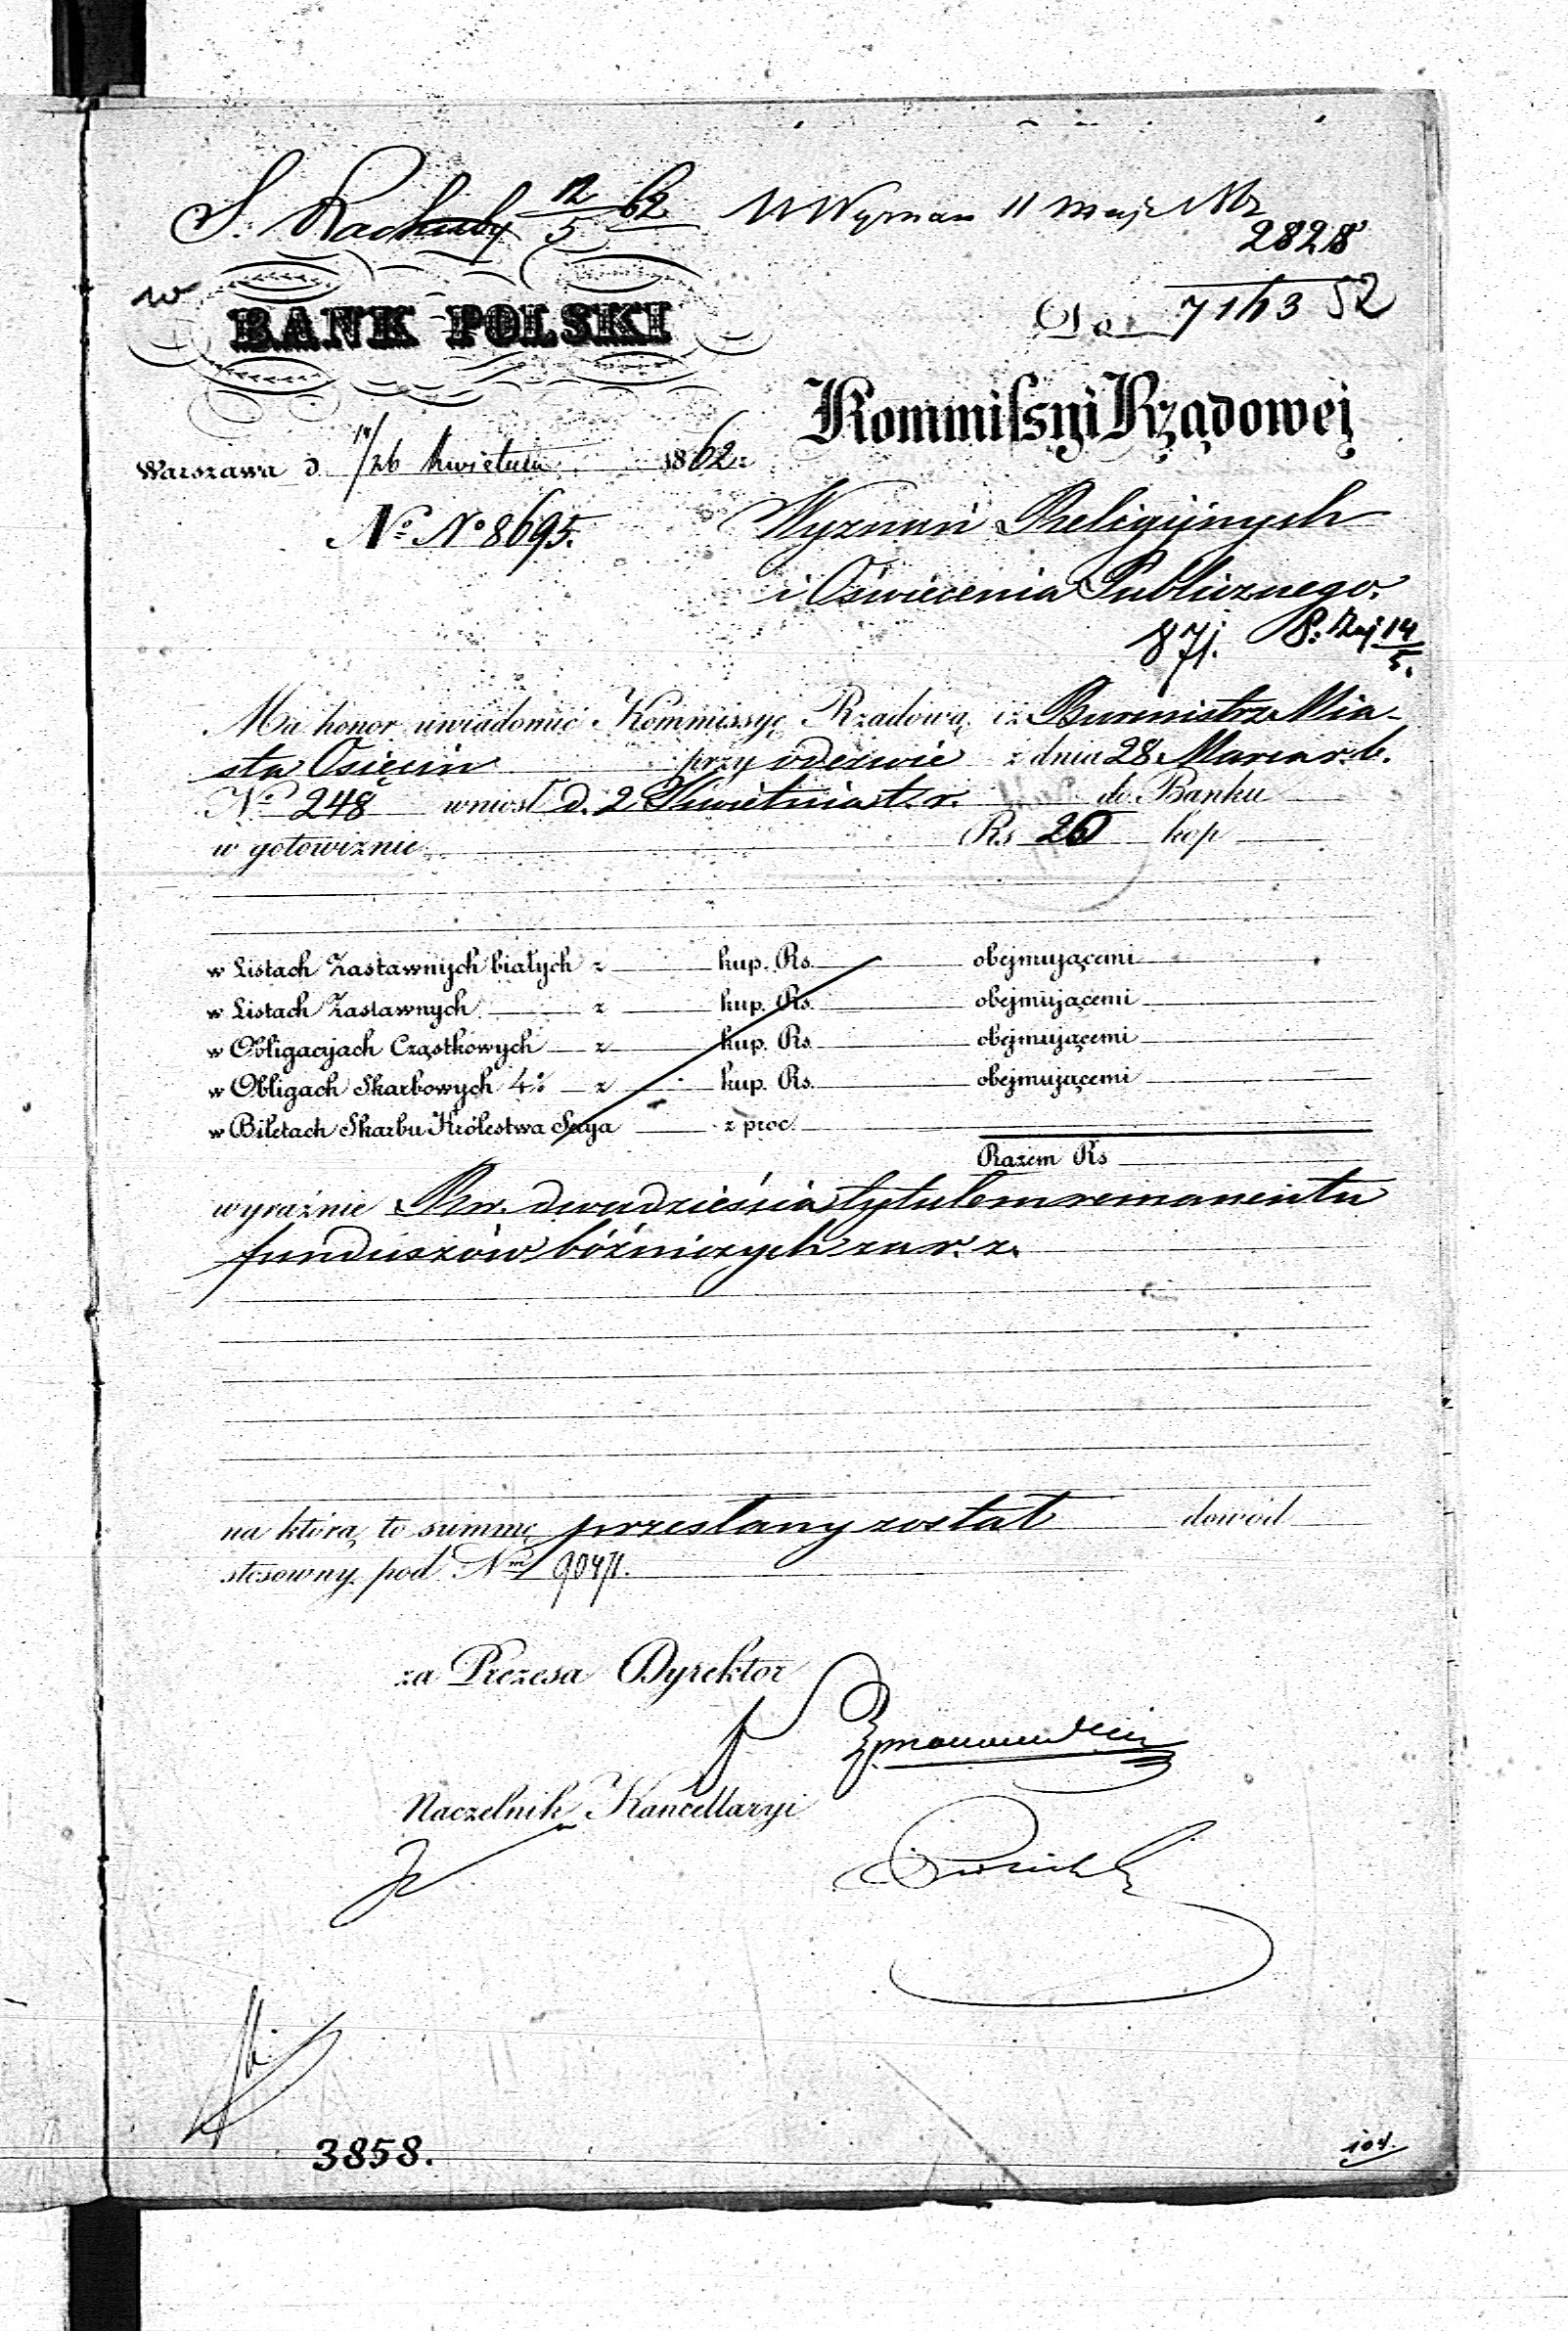 S. Rachuby 12/5 62 W Wyznań 11 Maja Nr
2828
w BANK POLSKI
Do 71h3 52
Kommissyi Rządowej
Warszawa d. 14/26 Kwietnia 1862.
Nº Nº 8695.
Wyznań Religijnych
i Oświecenia Publicznego.
87j. 14/5.
Ma honor uwiadomić Kommissyę Rządową iż Burmistrz Mia-
sta Osięcin przy odezwie z dnia 28 Marca r. b.
Nº 248 wniosł d. 2 Kwietnia t. r. do Banku
w gotowiznie Rs 20 kop
w Listach Zastawnych białych z kup. Rs. obejmującemi
w Listach Zastawnych z kup. Rs. obejmującemi
w Obligacyjach Cząstkowych z kup. Rs. obejmującemi
w Obligach Skarbowych 4% z kup. Rs. obejmującemi
w Biletach Skarbu Królestwa Serya z proc.
Razem Rs
wyraźnie Rsr. dwadzieścia tytułem remanentu
funduszów bóźniczych za r. z.
na którą to summę przesłany został dowód
stosowny pod Nm 9047.
za Prezesa Dyrektor
Naczelnik Kancellaryi
3858.
104.